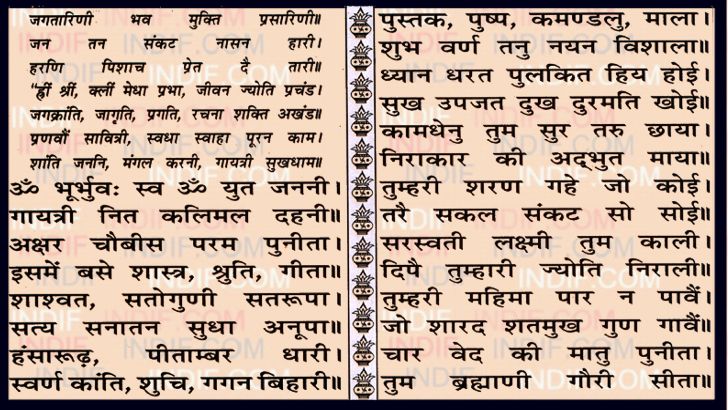 जगतारिणी भव मुक्ति प्रसारिणी॥
जन तन संकट नासन हारी।
हरणि पिशाच प्रेत दै तारी॥
"ह्रीं श्रीं, क्लीं मेधा प्रभा, जीवन ज्योति प्रचंड।
जगक्रांति, जागृति, प्रगति, रचना शक्ति अखंड॥
गावौं सावित्री, स्वधा स्वाहा पूरन काम।
शांति जननि, मंगल करनी, गायत्री सुखधाम॥
ॐ भूर्भुवः स्व ॐ युत जननी।
गायत्री नित कलिमल दहनी॥
अक्षर चौबीस परम पुनीता।
इसमें बसे शास्त्र, श्रुति, गीता॥
शाश्वत, सतोगुणी सतरूपा।
सत्य सनातन सुधा अनूपा॥
हंसारूढ़, पीताम्बर धारी।
स्वर्ण कांति, शुचि, गगन बिहारी॥
पुस्तक, पुष्प, कमण्डलु, माला।
शुभ वर्ण तनु नयन विशाला॥
ध्यान धरत पुलकित हिय होई।
सुख उपजत दुख दुरमति खोई॥
कामधेनु तुम सुर तरु छाया।
निराकार की अद्भुत माया॥
तुम्हरी शरण गहे जो कोई।
तरै सकल संकट सो सोई॥
सरस्वती लक्ष्मी तुम काली।
दिपै तुम्हारी ज्योति निराली॥
तुम्हरी महिमा पार न पावैं।
जो शारद शतमुख गुण गावैं॥
चार वेद की मातु पुनीता।
तुम ब्रह्माणी गौरी सीता॥